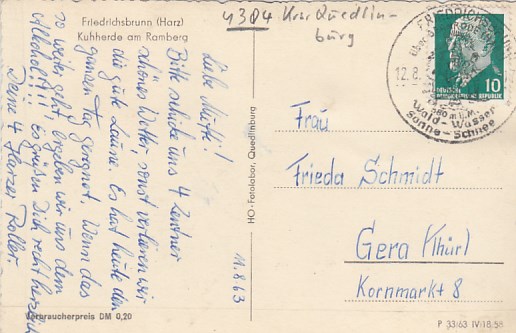 Friedrichsbrunn (Harz)
Kuhherde am Ramberg
4304 Krs. Quedlin-
burg
Liebe Mutti!
Bitte schicke uns 4 Zentner
schönes Wetter, sonst verlieren wir
die gute Laune. Es hat heute den
ganzen Tag geregnet. Wenn das
so weiter geht, ergeben wir uns dem
Alkohol!!! Es grüßen Dich recht herzlich
Deine 4 Harzer Roller
11.8.63
HO-Fotolabor, Quedlinburg
FRIEDRICHSBRUNN
12.8.
580 m ü.M.
Wald - Wasser
Sonne - Schnee
DEUTSCHE
DEMOKRATISCHE REPUBLIK
10
Frau
Frieda Schmidt
Gera (Thür)
Kornmarkt 8
Verbraucherpreis DM 0,20
P 33/63 IV/18/58